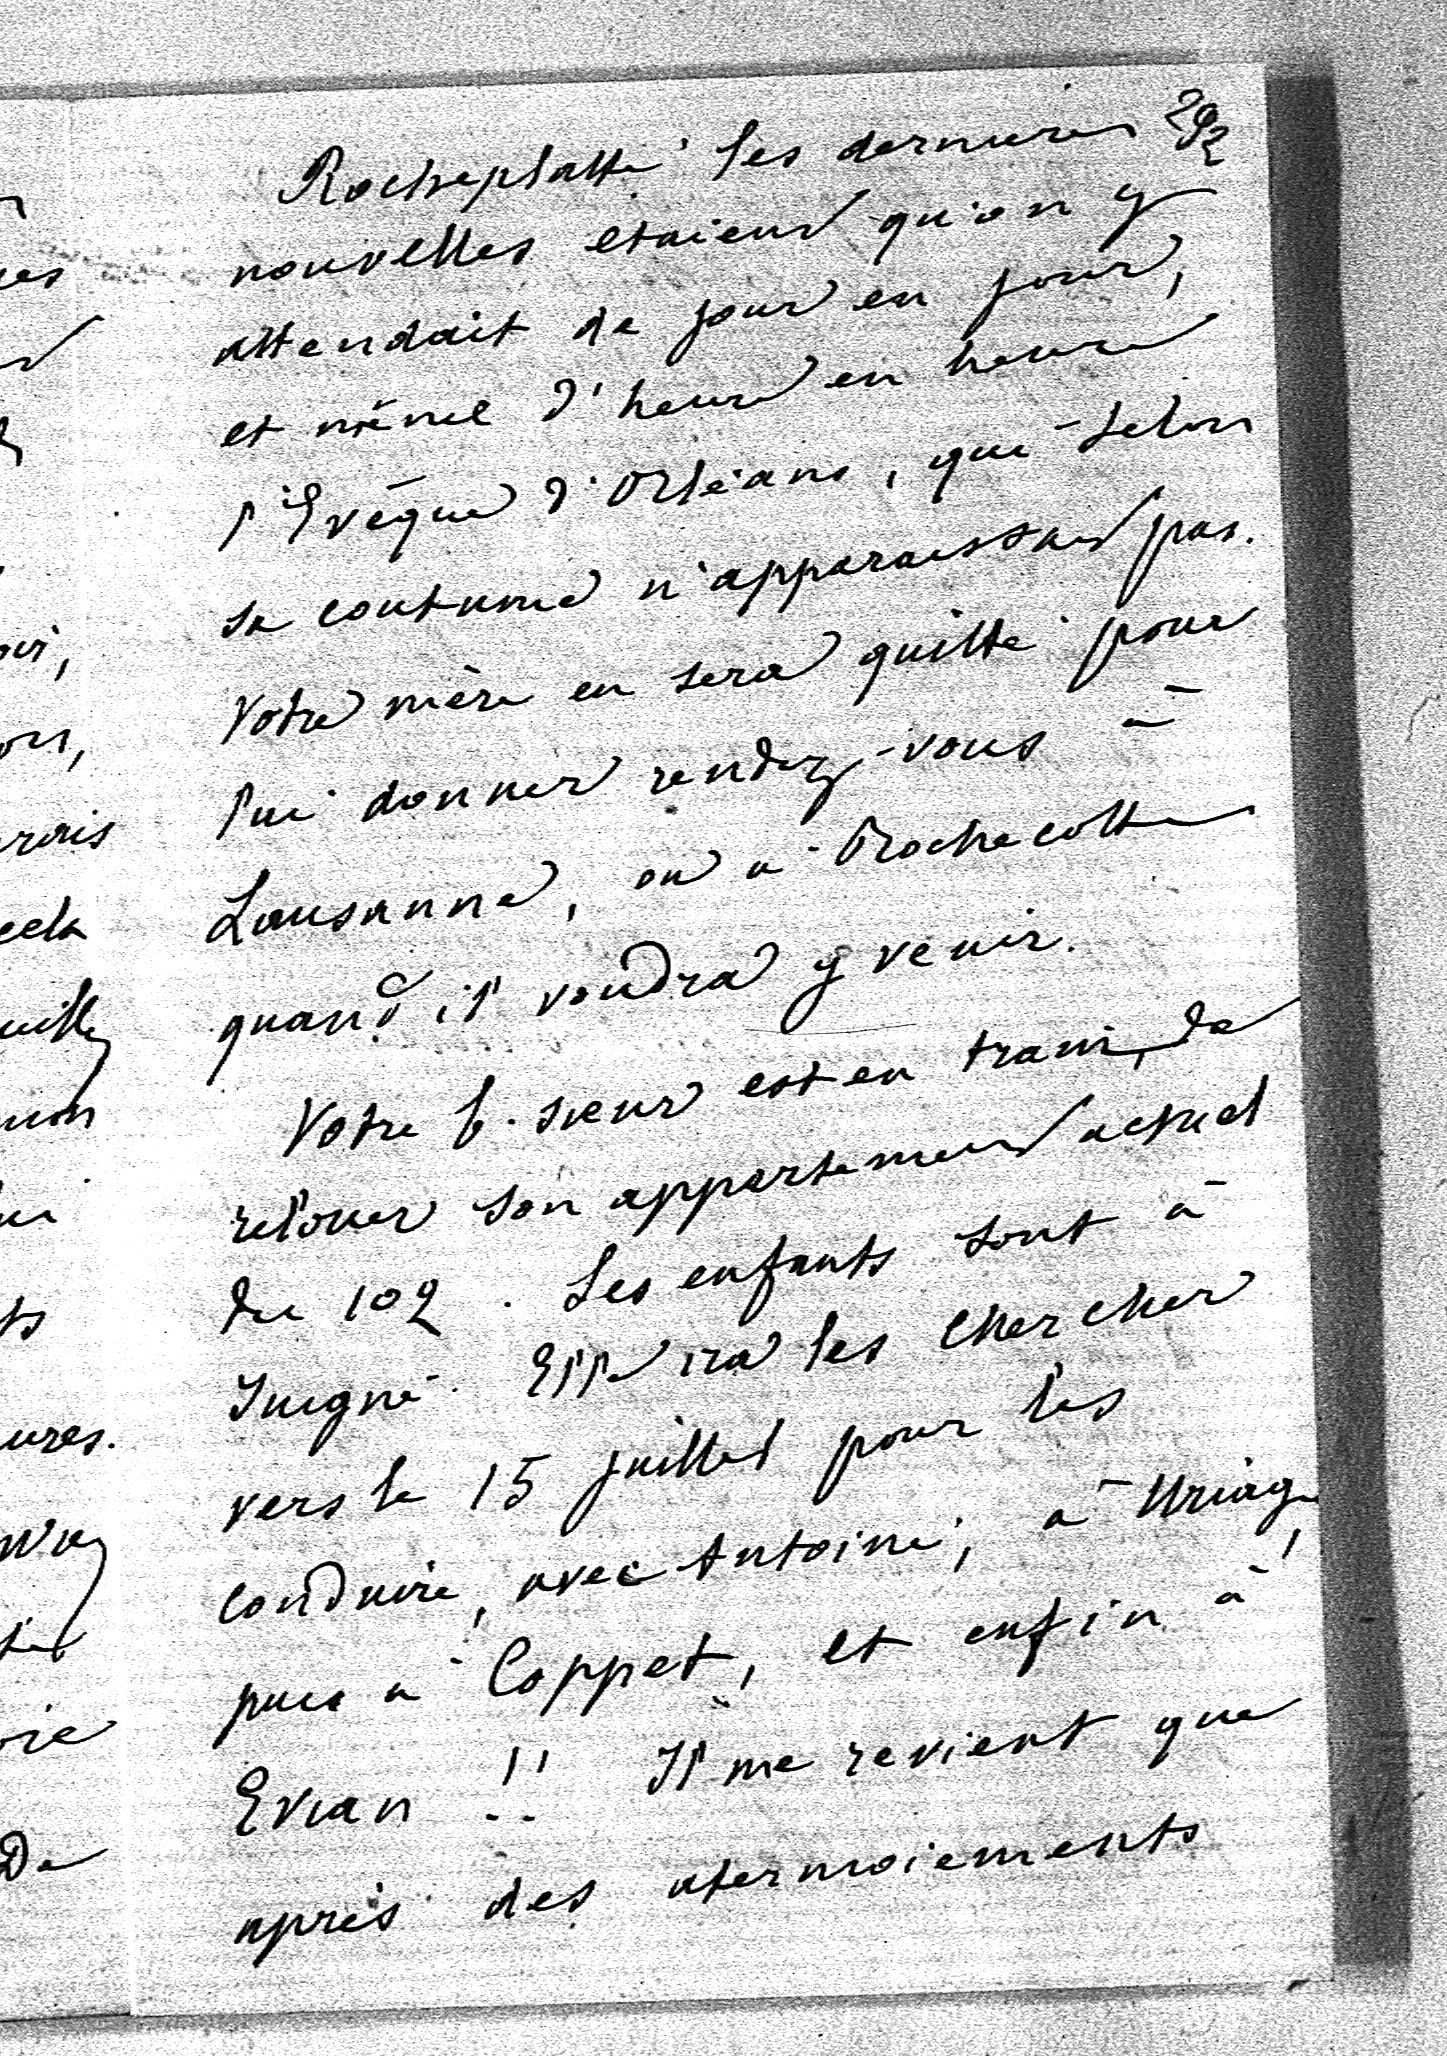 292
Rocheplatte les dernieres
nouvelles etaient qu'on y
attendait de jour en jour,
et même d'heure en heure
l'Evêque d'Orléans, qui selon
sa coutume n'apparaissait pas.
Votre mère en sera quitte pour
lui donner rendez-vous à
Lausanne, ou à Rochecotte
quand il voudra y venir.
Votre b. sœur est en train de
relouer son appartement actuel
du 102. Les enfants sont à
Juigné. Elle ira les chercher
vers le 15 juillet pour les
conduire, avec Antoine, à Uriage,
puis à Coppet, et enfin à
Evian !! Il me revient que
après des atermoiements